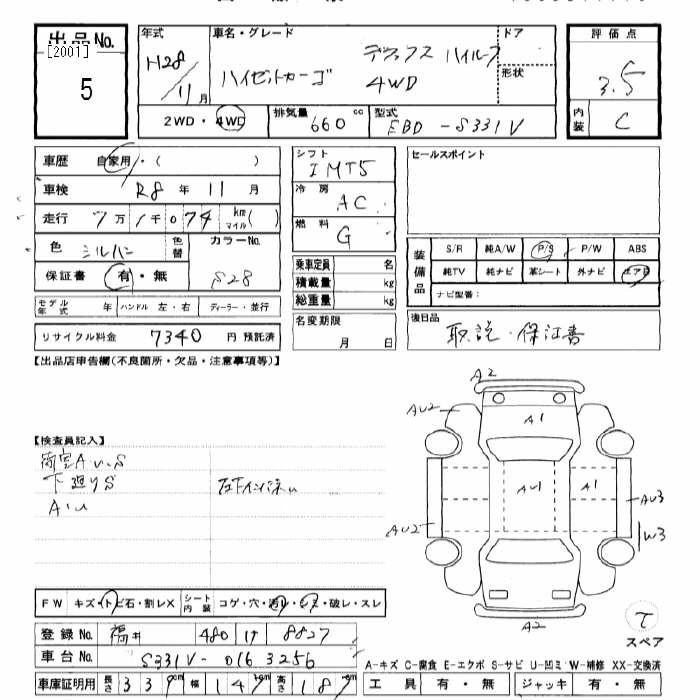 出品No.
[2001]
5
年式
H28
11月
車名・グレード
デラックス ハイルーフ
ハイゼットカーゴ 4WD
ドア
形状
評価点
3.5
内装 C
2WD・4WD
排気量 660 cc
型式 EBD-S331V
車歴 自家用・( )
車検 R8年 11月
走行 7万1千074 km マイル( )
色 シルバー 色替
カラーNo. S28
保証書 有・無
モデル年式 年 ハンドル 左・右 ディーラー・並行
リサイクル料金 7340 円 預託済
シフト
IMT5
冷房
AC
燃料
G
乗車定員 名
積載量 kg
総重量 kg
名変期限
月 日
セールスポイント
装備品
S/R 純A/W P/S P/W ABS
純TV 純ナビ 革シート 外ナビ エアB
ナビ型番:
後日品
取説・保証書
【出品店申告欄(不良箇所・欠品・注意事項等)】
【検査員記入】
荷室A・U・S
下廻りS
A・U
A2
AU2
A1
AU1
A1
AU3
AU2
W3
A2
スペア
FW キズ・トビ石・割レX
シート内装 コゲ・穴・汚レ・シミ・破レ・スレ
登録No. 福井 480 け 8827
車台No. S331V-0163256
車庫証明用 長さ 339cm 幅 147cm 高さ 187cm
A-キズ C-腐食 E-エクボ S-サビ U-凹ミ W-補修 XX-交換済
工具 有・無 ジャッキ 有・無